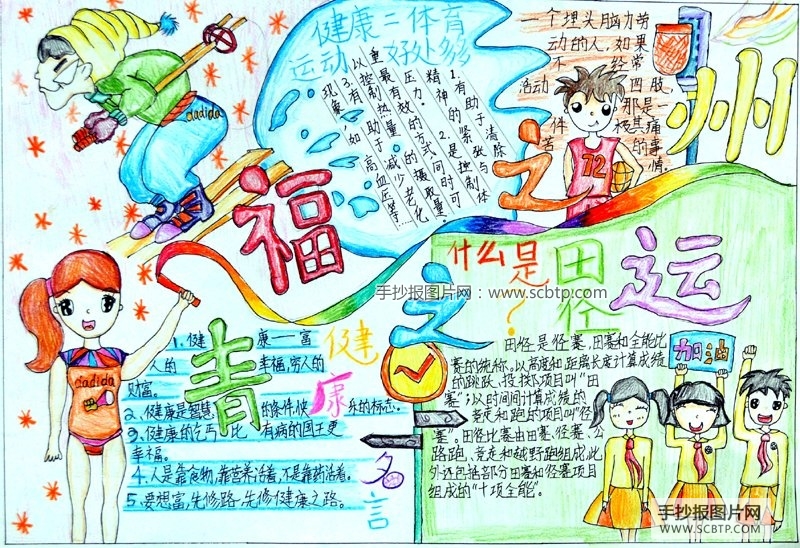 健康二体育
运动好处多
1.有助于清除
精神的紧张与
压力。2.是控制体
重最有效的方式,同时可
以控制热量的摄取量
3.有助于减少老化
现象,如高血压等
一个埋头脑力劳
动的人,如果
不 经常
活动 四肢,
那是一
件 极其痛
苦 的事情。
福之州
72
dadida
青之运
什么是田径?
手抄报图片网:www.scbtp.com
dadida
健康名言
1.健康——富
人的幸福,穷人的
财富。
2.健康是智慧的条件,愉快乐的标志。
3.健康的乞丐比有病的国王更
幸福。
4.人是靠食物,靠营养活着,不是靠药活着。
5.要想富,先修路,先修健康之路。
田径是径赛、田赛和全能比
赛的统称。以高度和距离长度计算成绩
的跳跃、投掷项目叫“田
赛”;以时间计算成绩的
竞走和跑的项目叫“径
赛”。田径比赛由田赛、径赛、公
路跑、竞走和越野跑组成,此
外还包括部分田赛和径赛项目
组成的“十项全能”。
加油
手抄报图片网
WWW.SCBTP.COM